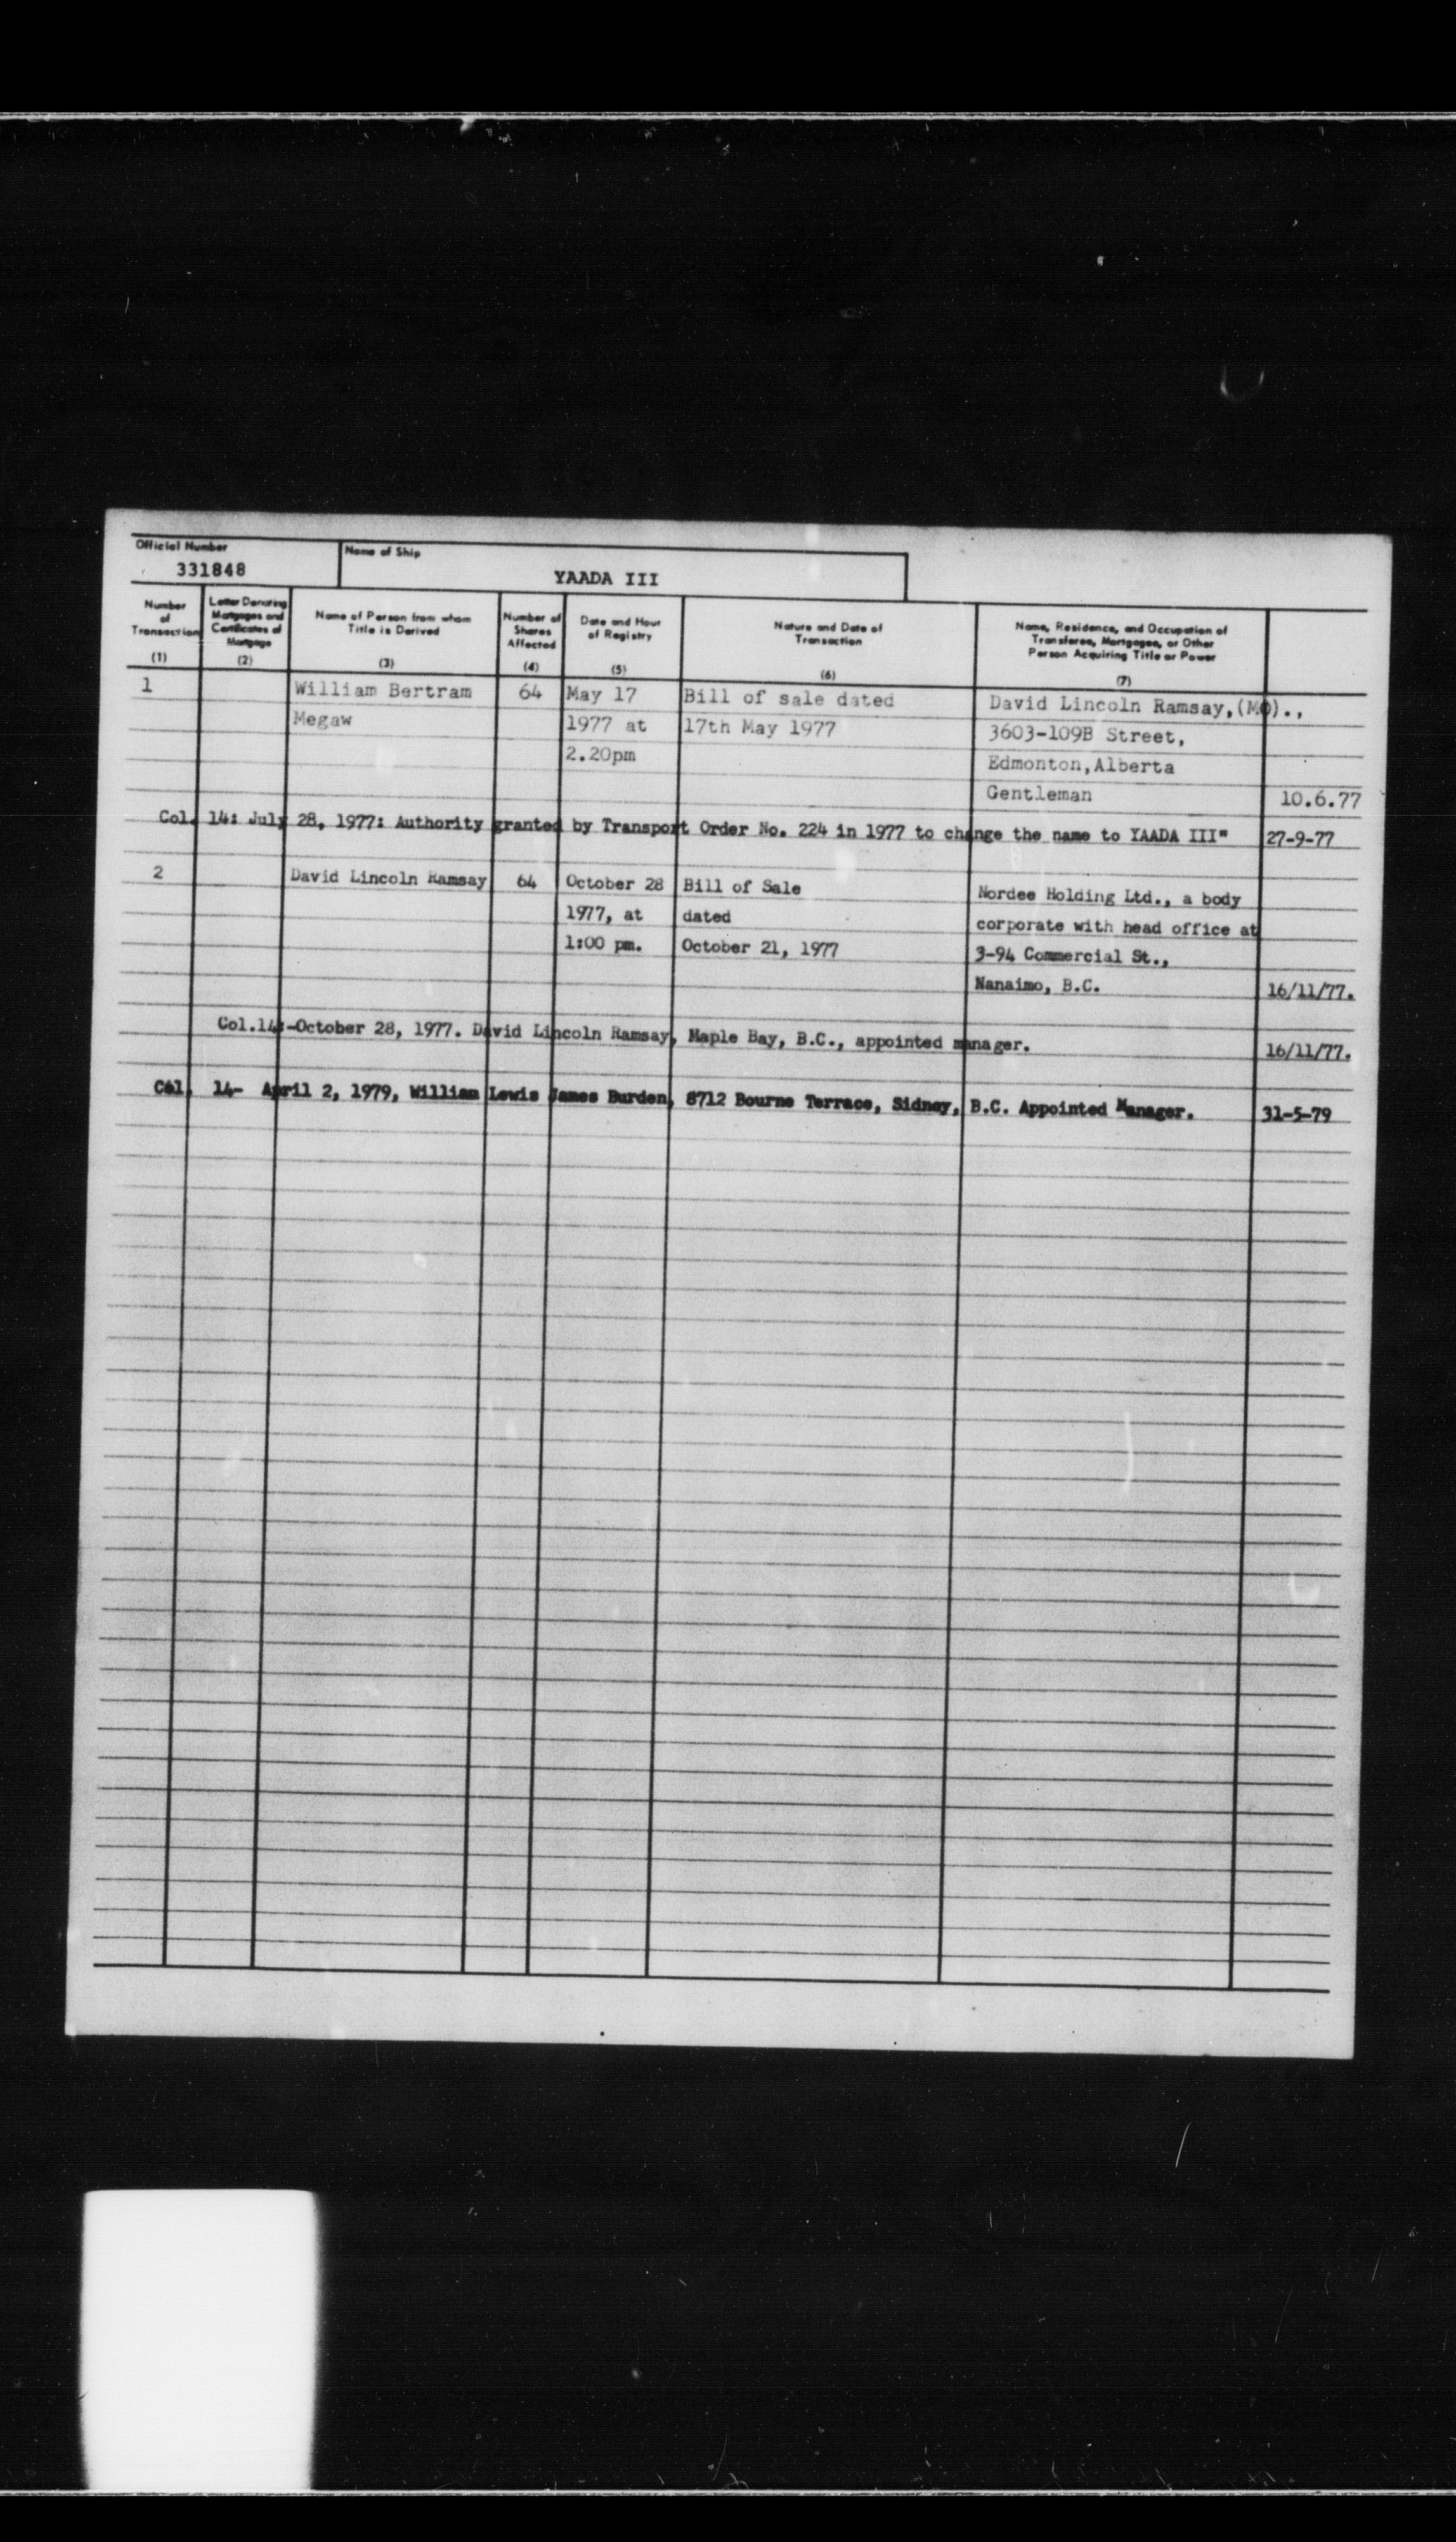 Official Number
331848
Name of Ship
YAADA III
Number of Transaction
(1)
Letter Denoting Mortgages and Certificates of Mortgage
(2)
Name of Person from whom Title is Derived
(3)
Number of Shares Affected
(4)
Date and Hour of Registry
(5)
Nature and Date of Transaction
(6)
Name, Residence, and Occupation of Transferee, Mortgagee, or Other Person Acquiring Title or Power
(7)
1 William Bertram 64 May 17 Bill of sale dated David Lincoln Ramsay,(MO).,
Megaw 1977 at 17th May 1977 3603-109B Street,
2.20pm Edmonton,Alberta
Gentleman 10.6.77
Col. 14: July 28, 1977: Authority granted by Transport Order No. 224 in 1977 to change the name to YAADA III" 27-9-77
2 David Lincoln Ramsay 64 October 28 Bill of Sale Nordee Holding Ltd., a body
1977, at dated corporate with head office at
1:00 pm. October 21, 1977 3-94 Commercial St.,
Nanaimo, B.C. 16/11/77.
Col.14:-October 28, 1977. David Lincoln Ramsay, Maple Bay, B.C., appointed manager. 16/11/77.
Col. 14- April 2, 1979, William Lewis James Burden, 8712 Bourne Terrace, Sidney, B.C. Appointed Manager. 31-5-79